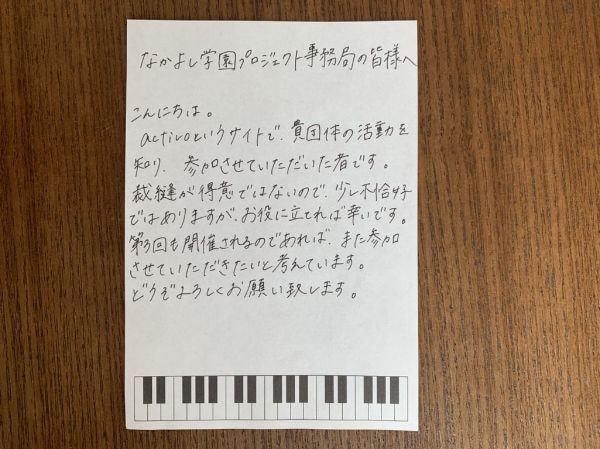 なかよし学園プロジェクト事務局の皆様へ
こんにちは。
activoというサイトで、貴団体の活動を
知り、参加させていただいた者です。
裁縫が得意ではないので、少し不恰好
ではありますが、お役に立てれば幸いです。
第3回も開催されるのであれば、また参加
させていただきたいと考えています。
どうぞよろしくお願い致します。